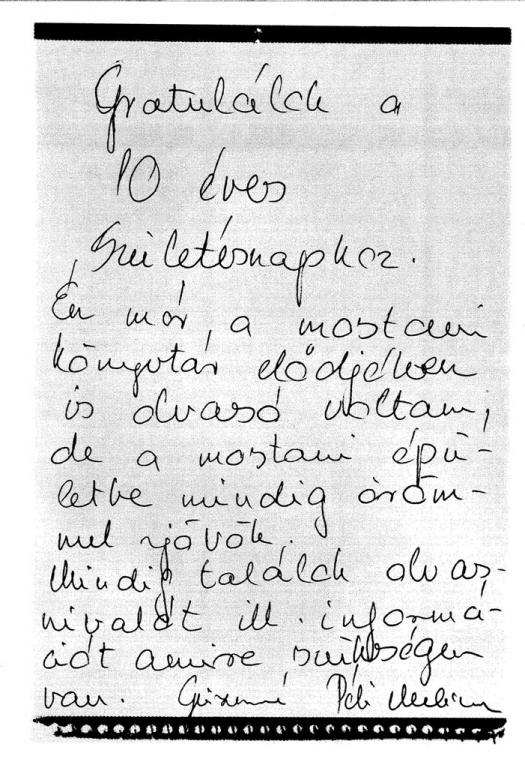 Gratulálok a
10 éves
Születésnaphoz.
Én már a mostani
könyvtár elődjében
is olvasó voltam,
de a mostani épü-
letbe mindig öröm-
mel jövök.
Mindig találok olvas-
nivalót ill. informá-
ciót amire szükségem
van. Páli